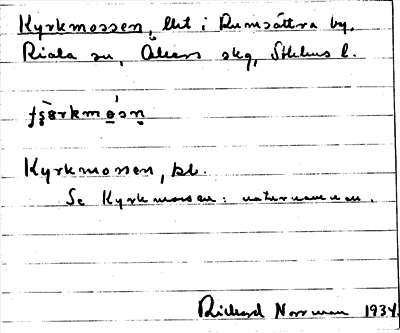 Kyrkmossen, lht i Rumsättra by,
Riala sn, Åkers skg, Sthlms l.
Kyrkmossen, bl.
Se Kyrkmossen: naturnamnen.
Rickard Norrman 1934.